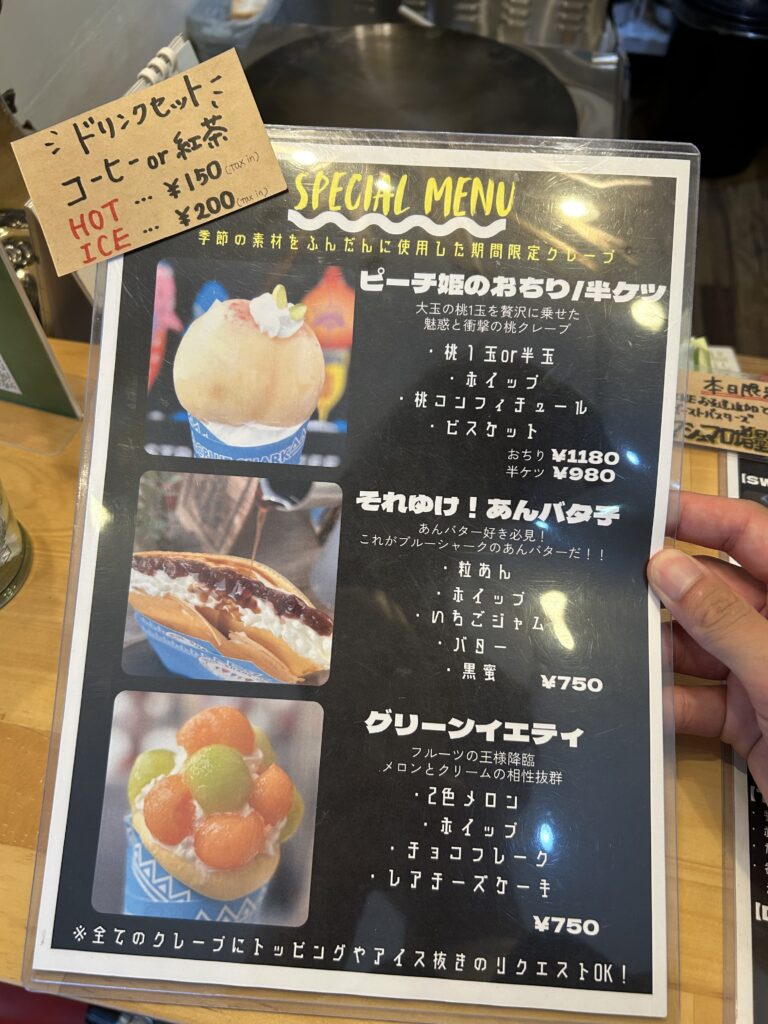 ドリンクセット
コーヒー or 紅茶
HOT … ¥150 (tax in)
ICE … ¥200 (tax in)
SPECIAL MENU
季節の素材をふんだんに使用した期間限定クレープ
ピーチ姫のおちり/半ケツ
大玉の桃1玉を贅沢に乗せた
魅惑と衝撃の桃クレープ
・桃1玉or半玉
・ホイップ
・桃コンフィチュール
・ビスケット
おちり ¥1180
半ケツ ¥980
それゆけ！あんバタ子
あんバター好き必見！
これがブルーシャークのあんバターだ！！
・粒あん
・ホイップ
・いちごジャム
・バター
・黒蜜
¥750
グリーンイエティ
フルーツの王様降臨
メロンとクリームの相性抜群
・2色メロン
・ホイップ
・チョコフレーク
・レアチーズケーキ
¥750
※全てのクレープにトッピングやアイス抜きのリクエストOK！
本日限